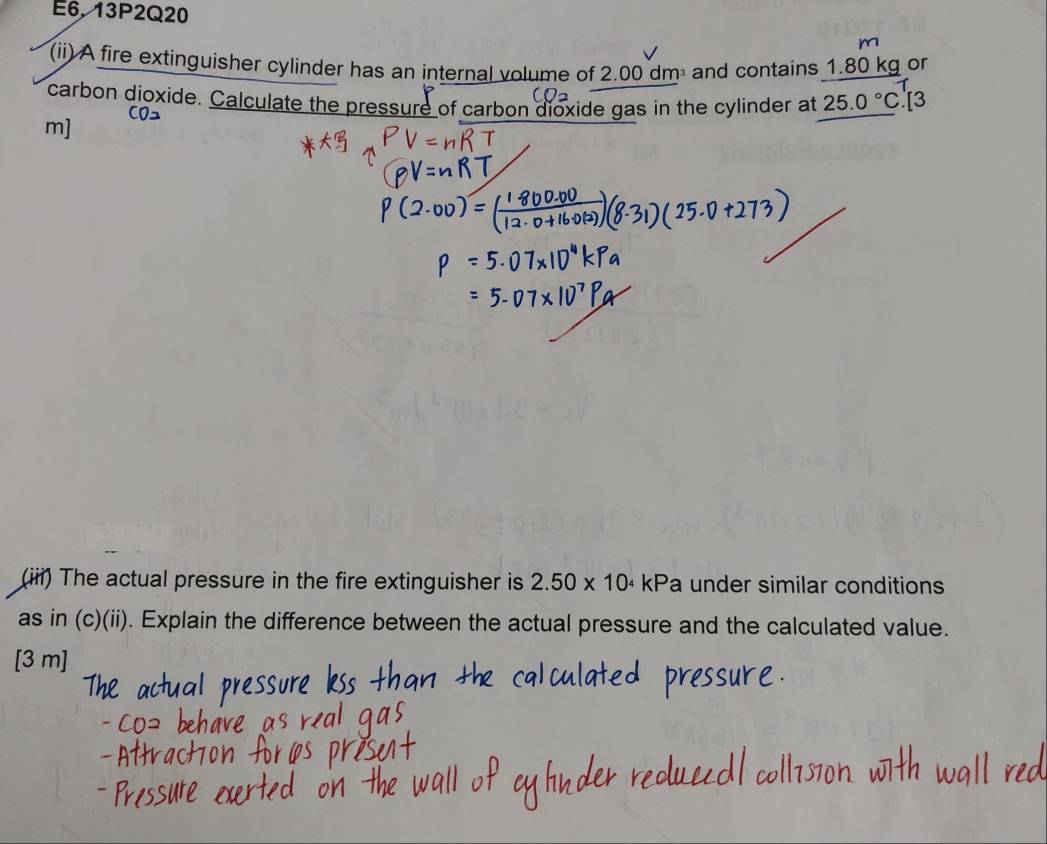 E6. 13P2Q20
(ii) A fire extinguisher cylinder has an internal volume of 2.00 dm³ and contains 1.80 kg or
V
m
carbon dioxide. Calculate the pressure of carbon dioxide gas in the cylinder at 25.0 °C.[3
CO2
P
CO2
T
m]
*大写 ↑ PV=nRT
pV=nRT
P(2.00) = (1800.00/12.0+16.0(2))(8.31)(25.0+273)
P = 5.07×10⁴ kPa
= 5.07×10⁷ Pa
(iii) The actual pressure in the fire extinguisher is 2.50 x 10⁴ kPa under similar conditions
as in (c)(ii). Explain the difference between the actual pressure and the calculated value.
[3 m]
The actual pressure less than the calculated pressure.
- CO2 behave as real gas
- Attraction forces present
- Pressure exerted on the wall of cylinder reduced / collision with wall red